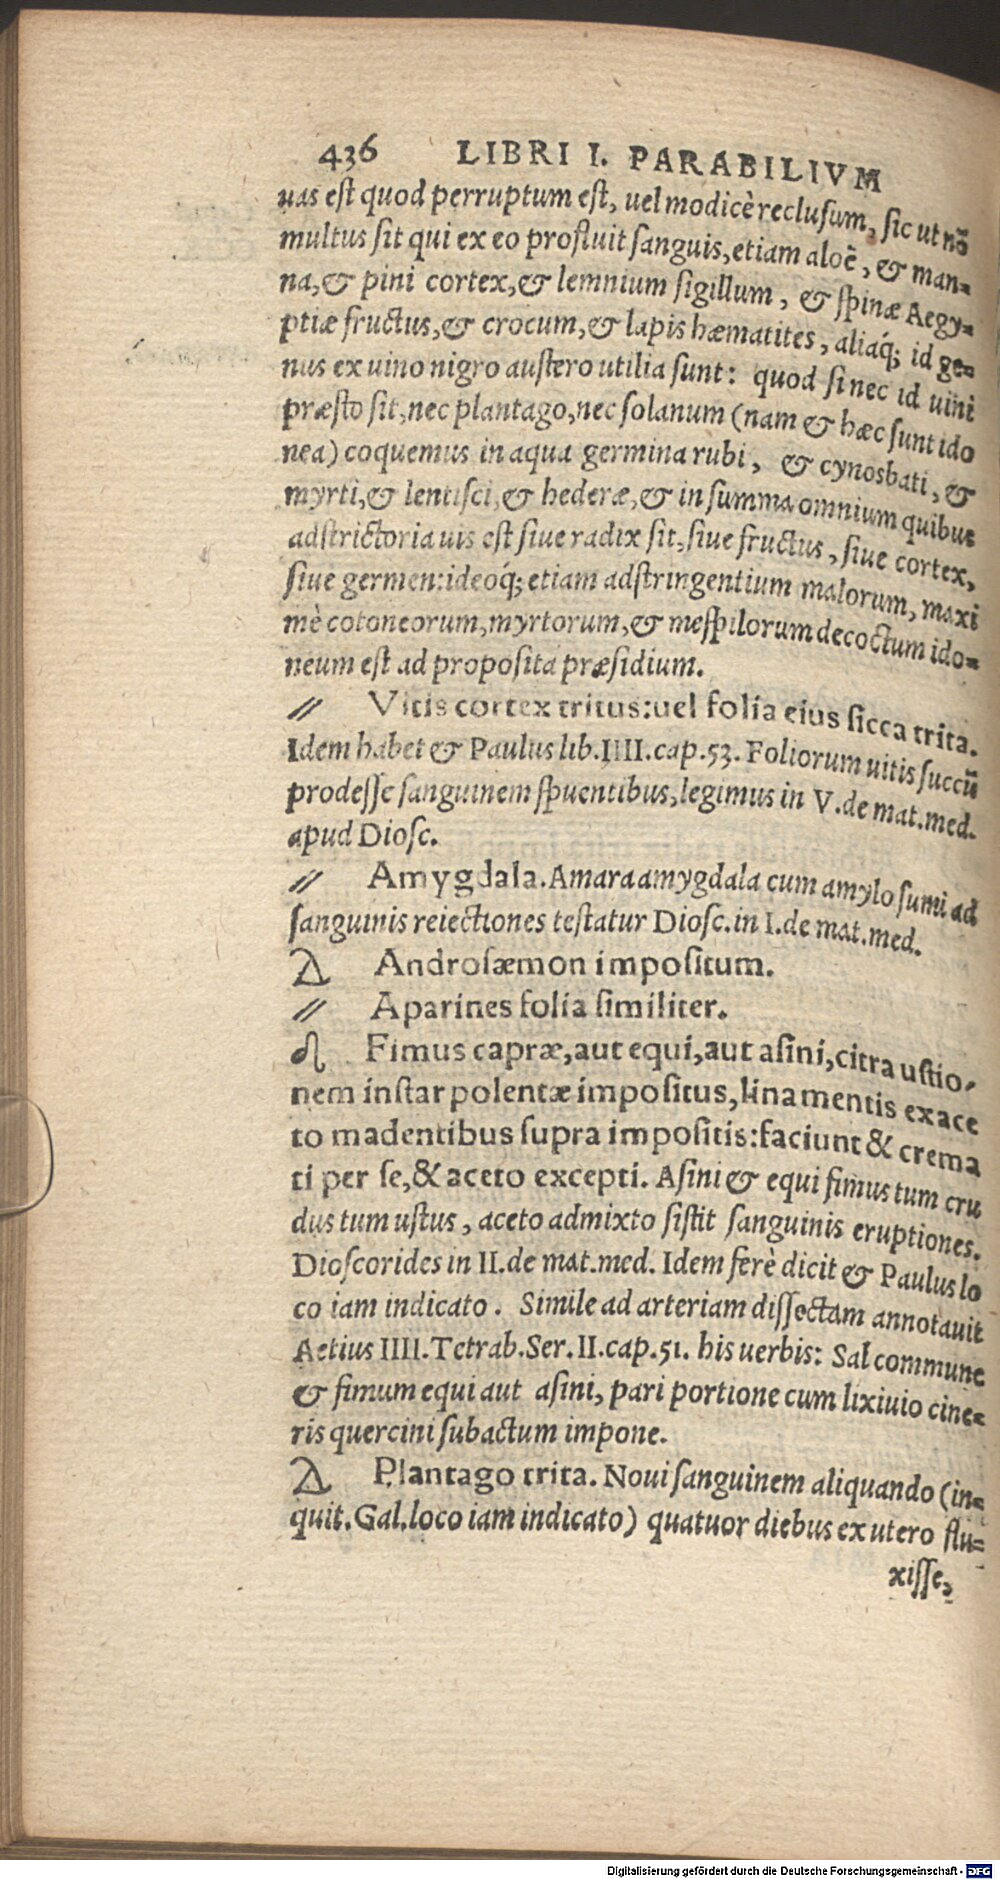 436 LIBRI I. PARABILIVM
uas est quod perruptum est, uel modicè reclusum, sic ut nō
multus sit qui ex eo profluit sanguis, etiam aloë, & man=
na, & pini cortex, & lemnium sigillum, & spinæ Aegy=
ptiæ fructus, & crocum, & lapis hæmatites, aliaq́; id ge=
nus ex uino nigro austero utilia sunt: quod si nec id uini
præsto sit, nec plantago, nec solanum (nam & hæc sunt ido
nea) coquemus in aqua germina rubi, & cynosbati, &
myrti, & lentisci, & hederæ, & in summa omnium quibus
adstrictoria uis est siue radix sit, siue fructus, siue cortex,
siue germen: ideoq́; etiam adstringentium malorum, maxi
mè cotoneorum, myrtorum, & mespilorum decoctum ido=
neum est ad proposita præsidium.
// Vitis cortex tritus: uel folia eius sicca trita.
Idem habet & Paulus lib. IIII. cap. 53. Foliorum uitis succū
prodesse sanguinem spuentibus, legimus in V. de mat. med.
apud Diosc.
// Amygdala. Amara amygdala cum amylo sumi ad
sanguinis reiectiones testatur Diosc. in I. de mat. med.
Androsæmon impositum.
// Aparines folia similiter.
Fimus capræ, aut equi, aut asini, citra ustio-
nem instar polentæ impositus, linamentis ex ace
to madentibus supra impositis: faciunt & crema
ti per se, & aceto excepti. Asini & equi fimus tum cru
dus tum ustus, aceto admixto sistit sanguinis eruptiones.
Dioscorides in II. de mat. med. Idem ferè dicit & Paulus lo
co iam indicato. Simile ad arteriam dissectam annotauit
Aetius IIII. Tetrab. Ser. II. cap. 51. his uerbis: Sal commune
& fimum equi aut asini, pari portione cum lixiuio cine=
ris quercini subactum impone.
Plantago trita. Noui sanguinem aliquando (in=
quit. Gal. loco iam indicato) quatuor diebus ex utero flu=
xisse,
Digitalisierung gefördert durch die Deutsche Forschungsgemeinschaft - DFG